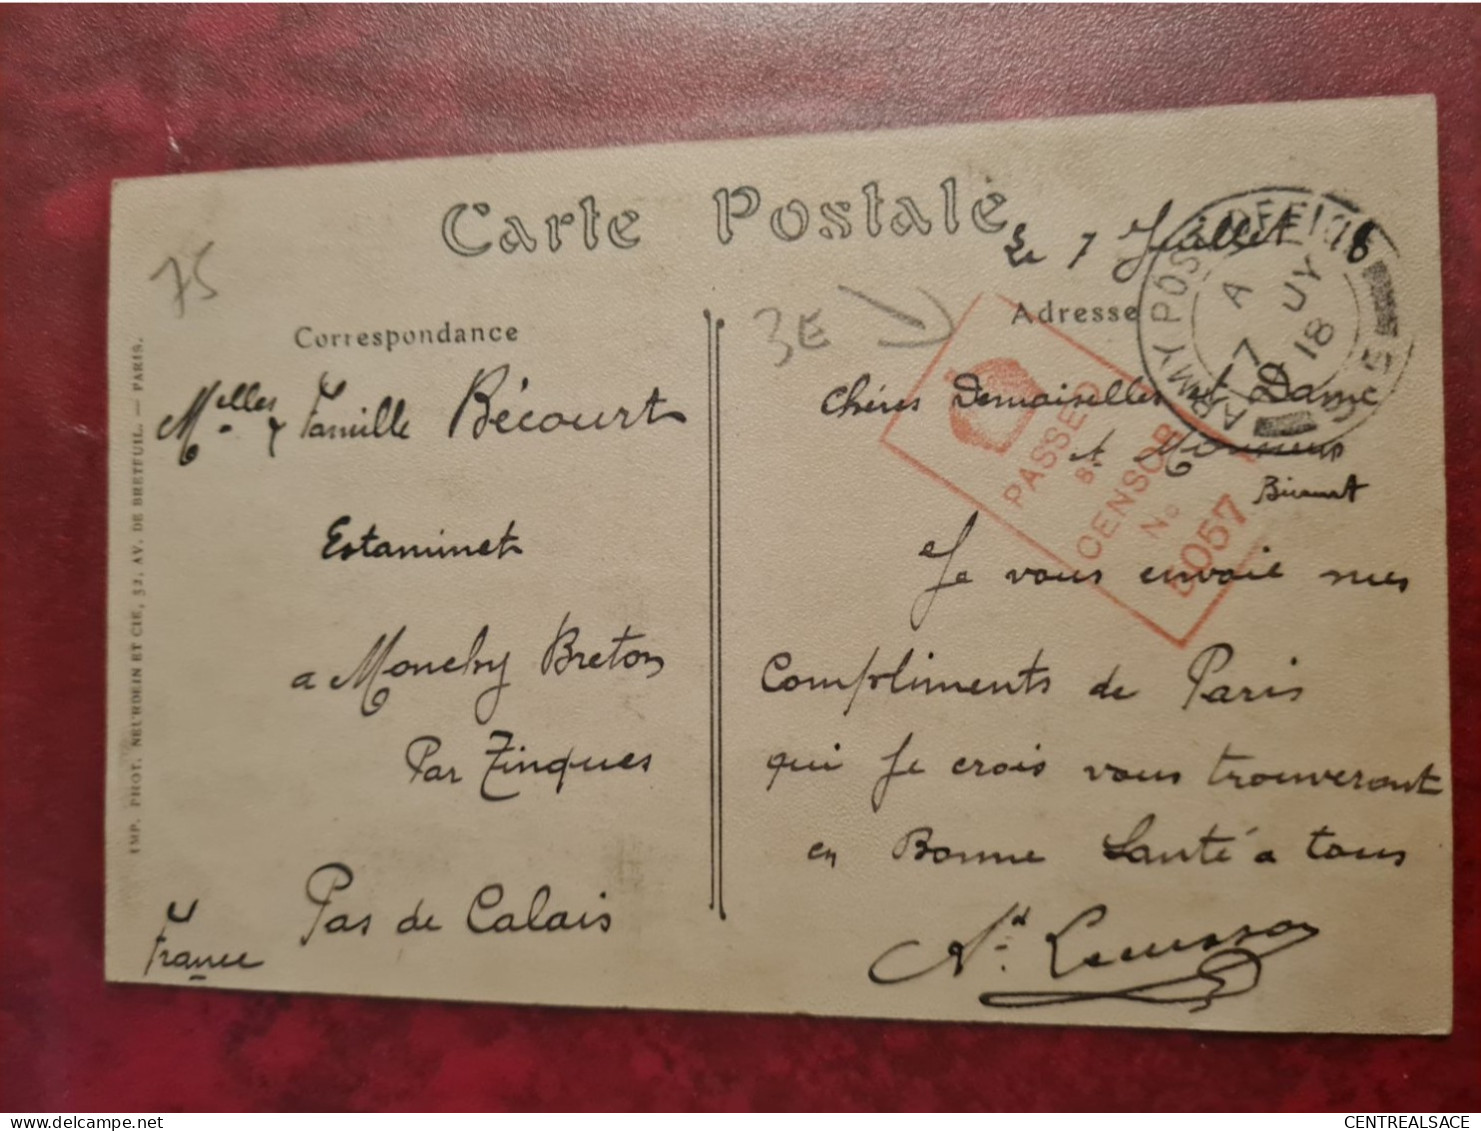 Carte Postale
75
Le 7 Juillet 18
ARMY POST OFFICE
A
7 JY
18
Correspondance
Adresse
3E
PASSED
BY
CENSOR
No
5057
IMP. PHOT. NEURDEIN ET CIE, 52, AV. DE BRETEUIL. — PARIS.
Melles & Famille Bécourt
Estaminet
a Monchy Breton
Par Tinques
Pas de Calais
France
Chéres Demoiselles et Dame
et Monsieur
Bécourt
Je vous envoie mes
Compliments de Paris
qui Je crois vous trouveront
en Bonne Santé a tous
CENTREALSACE